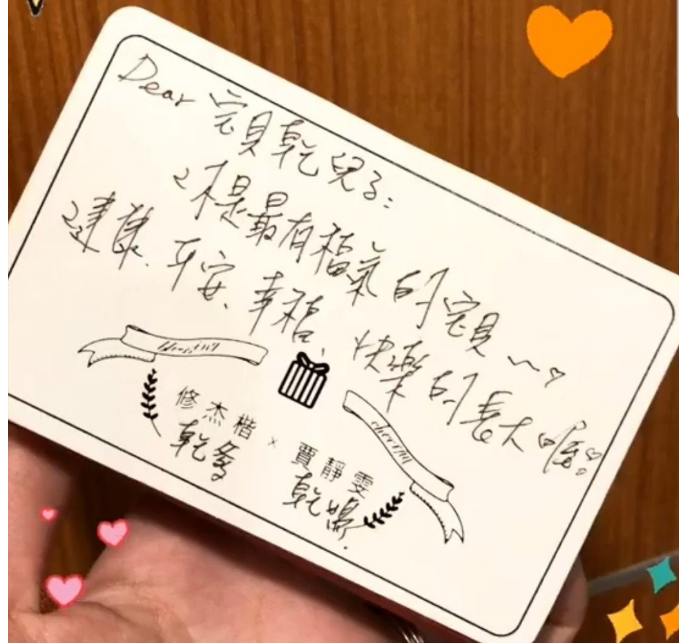 Dear 宝貝乾兒子:
你是最有福氣的宝貝~♡
健康、平安、幸福、快樂的長大喔!♡
修杰楷 × 賈靜雯
乾爹 乾媽.